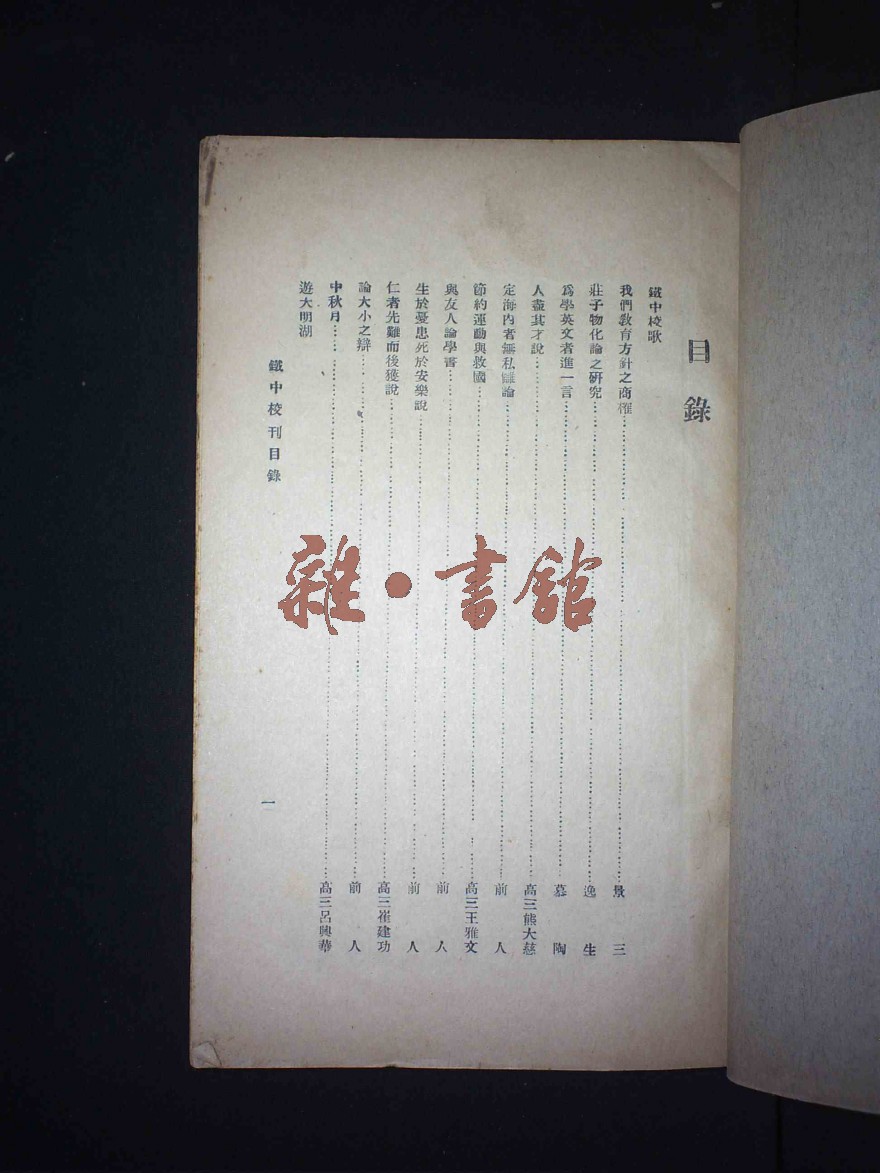 目錄
鐵中校歌
我們教育方針之商榷……景三
莊子物化論之研究……逸生
爲學英文者進一言……慕陶
人盡其才說……高三熊大慈
定海內者無私讎論……前人
節約運動與救國……高三王雅文
與友人論學書……前人
生於憂患死於安樂說……前人
仁者先難而後獲說……高三崔建功
論大小之辯……前人
中秋月……高三呂興華
遊大明湖
鐵中校刊目錄
一
雜·書館